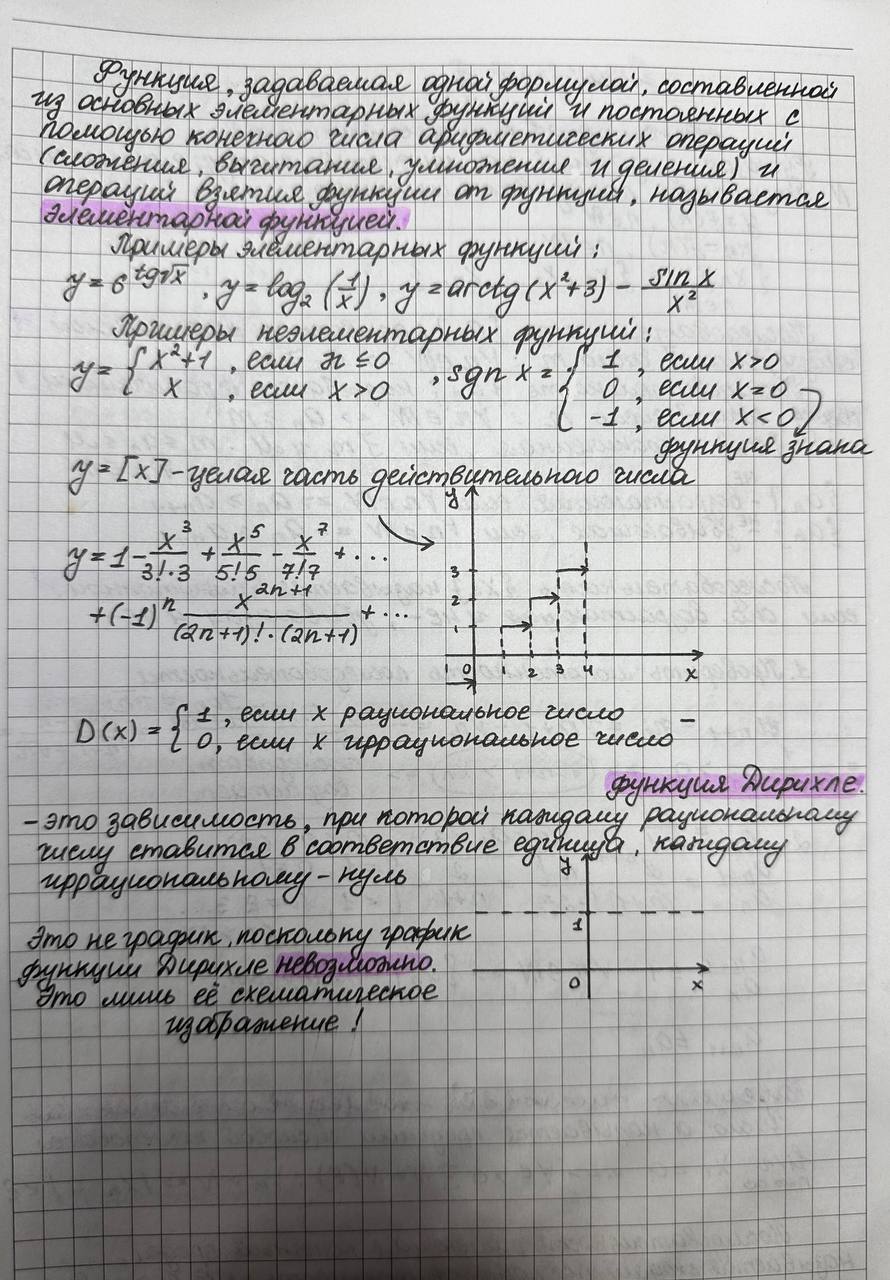 Функция, задаваемая одной формулой, составленной
из основных элементарных функций и постоянных с
помощью конечного числа арифметических операций
(сложения, вычитания, умножения и деления) и
операций взятия функции от функции, называется
элементарной функцией.
Примеры элементарных функций:
y = 6^(tg√x), y = log₂(1/x), y = arctg(x²+3) - sin x/x²
Примеры неэлементарных функций:
y = { x²+1, если x ≤ 0
x, если x > 0
, sgn x = { 1, если x > 0
0, если x = 0
-1, если x < 0
функция знака
y = [x] - целая часть действительного числа
y = 1 - x³/(3!·3) + x⁵/(5!5) - x⁷/(7!7) + ...
+ (-1)ⁿ x²ⁿ⁺¹/((2n+1)!·(2n+1)) + ...
y
3
2
1
-1 0 1 2 3 4 x
D(x) = { 1, если x рациональное число
0, если x иррациональное число
-
функция Дирихле.
- это зависимость, при которой каждому рациональному
числу ставится в соответствие единица, каждому
иррациональному - нуль
y
1
0 x
Это не график, поскольку график
функции Дирихле невозможно.
Это лишь её схематическое
изображение!